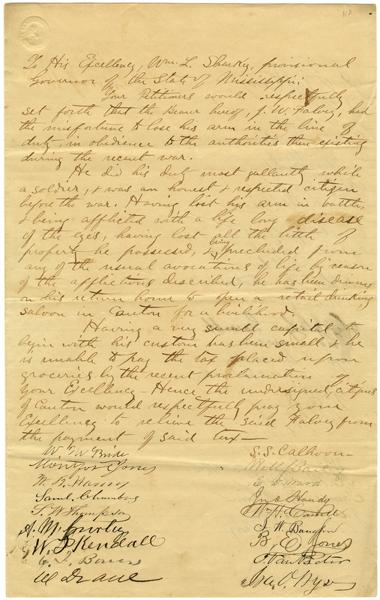 To His Excellency, Wm. L. Sharkey, provisional
Governor of the State of Mississippi:
Your Petitioners would respectfully
set forth that the bearer hereof, J. W. Halvey, had
the misfortune to lose his arm in the line of
duty, in obedience to the authorities then existing
during the recent war.
He did his duty most gallantly while
a soldier, & was an honest & respected citizen
before the war. Having lost his arm in battle,
& being afflicted with a life long disease
of the eyes, having lost all the little
property he possessed, & being precluded from
any of the usual avocations of life by reason
of the afflictions described, he has been
on his return home to open a retail drinking
saloon in Canton for a livelihood.
Having a very small capital to
begin with his custom has been small & he
is unable to pay the tax placed upon
groceries by the recent proclamation of
Your Excellency — Hence the undersigned, citizens
of Canton would respectfully pray your
Excellency to relieve the said Halvey from
the payment of said tax —
S. S. Calhoon
Jones
Saml.
Thompson
W. Kendall
Jones
Drane